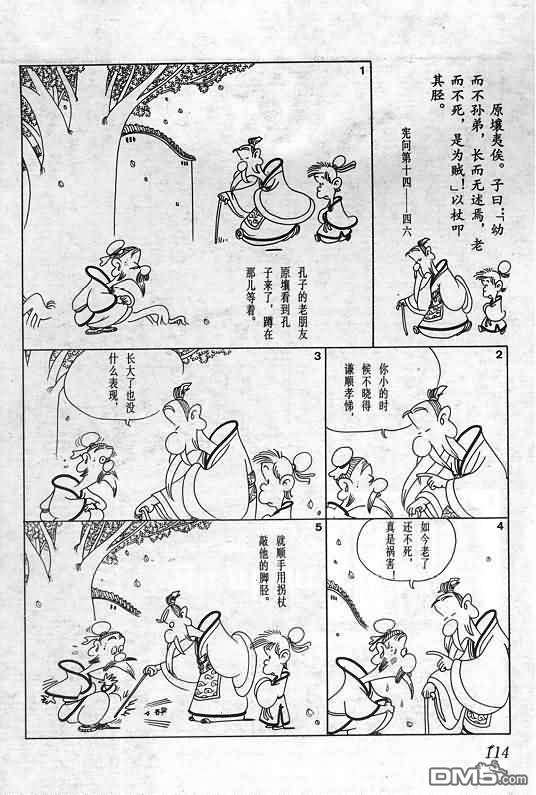 原壤夷俟。子曰：「幼
而不孙弟，长而无述焉，老
而不死，是为贼！」以杖叩
其胫。
宪问第十四——四六
1
孔子的老朋友
原壤看到孔
子来了，蹲在
那儿等着。
2
你小的时
候不晓得
谦顺孝悌，
3
长大了也没
什么表现，
4
如今老了
还不死，
真是祸害！
5
就顺手用拐杖
敲他的脚胫。
114
DM5.com